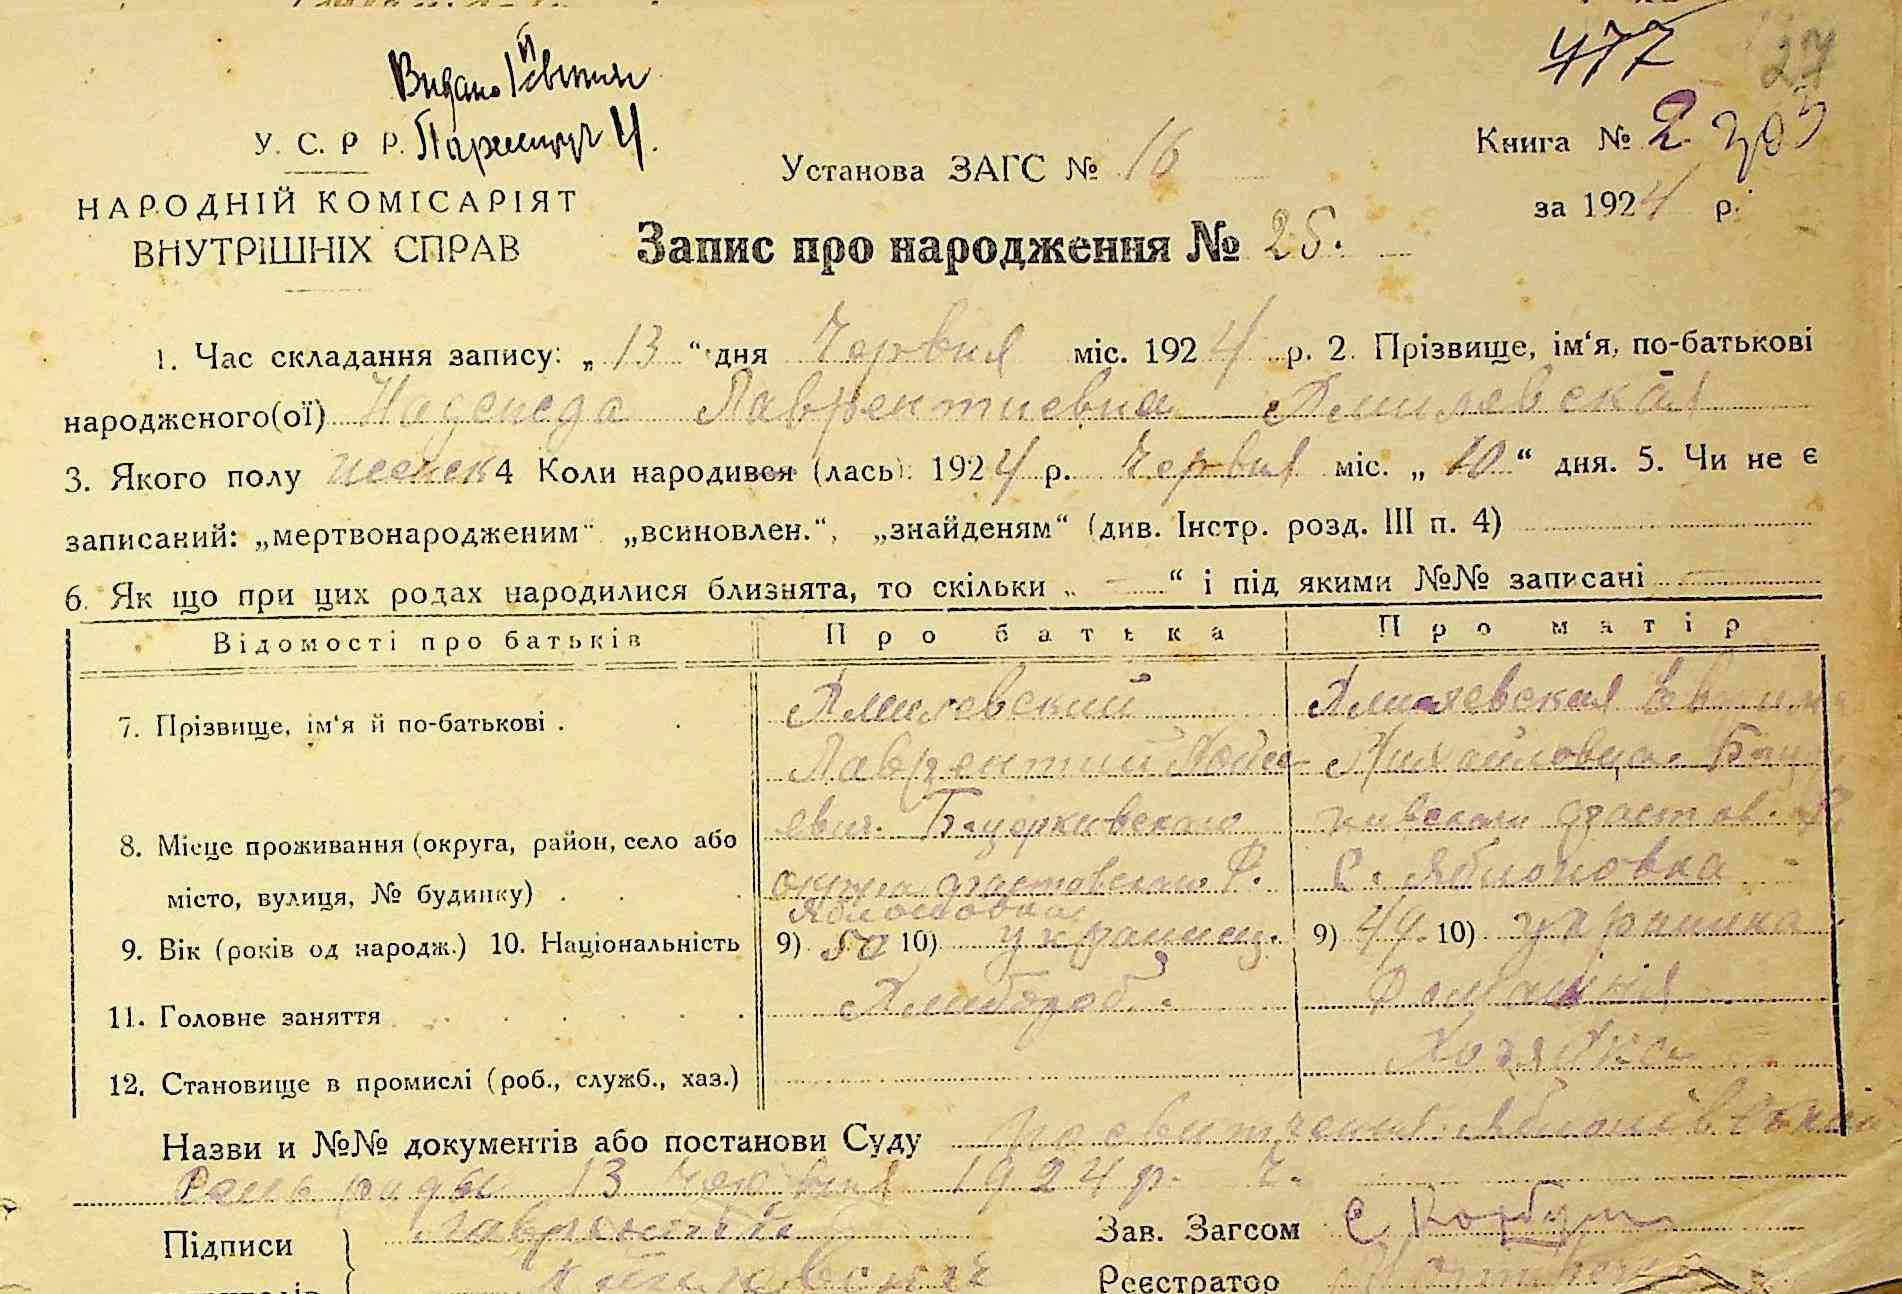 477
27
Видано
У. С. Р Р.
Установа ЗАГС № 16
Книга № 2 303
НАРОДНІЙ КОМІСАРІЯТ
ВНУТРІШНІХ СПРАВ
за 1924 р.
Запис про народження № 25.
1. Час складання запису: „ 13 “ дня Червня міс. 1924 р. 2. Прізвище, ім‘я, по-батькові
народженого(ої) Надежда Лаврентиевна
3. Якого полу женск 4 Коли народився (лась) 1924 р. Червня міс. „ 10 “ дня. 5. Чи не є
записаний: „мертвонародженим“ „всиновлен.“, „знайденям“ (див. Інстр. розд. III п. 4)
6. Як що при цих родах народилися близнята, то скільки „ — “ і під якими №№ записані —
Відомості про батьків Про батька Про матір
7. Прізвище, ім‘я й по-батькові .
Лаврентий
Михайловна
8. Місце проживання (округа, район, село або
місто, вулиця, № будинку)
Яблоновка
С. Яблоновка
9. Вік (років од народж.) 10. Національність 9) 50 10) украинец. 9) 49 10) украинка
11. Головне заняття Хлибороб. Домашняя
Хозяйка
12. Становище в промислі (роб., служб., хаз.)
Назви и №№ документів або постанови Суду
13 Червня 1924 р.
Підписи
Зав. Загсом
Реєстратор